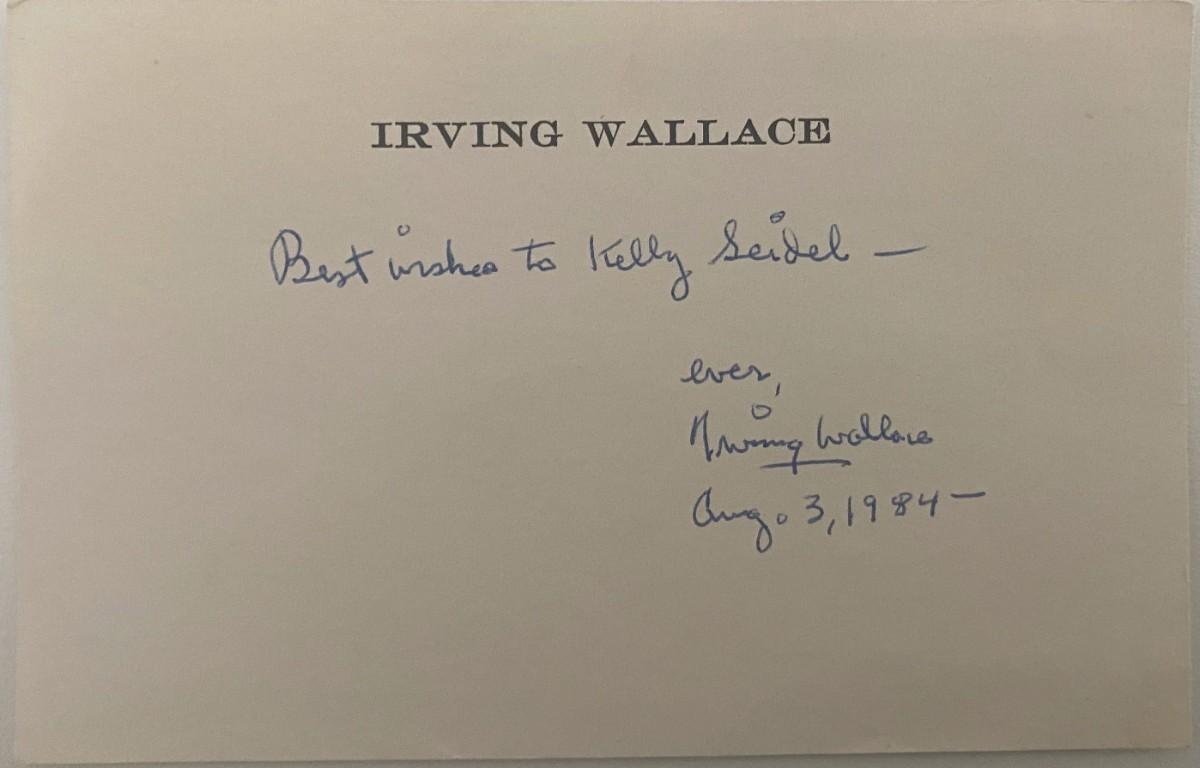 IRVING WALLACE
Best wishes to Kelly Seidel —
ever,
Irving Wallace
Aug. 3, 1984 —